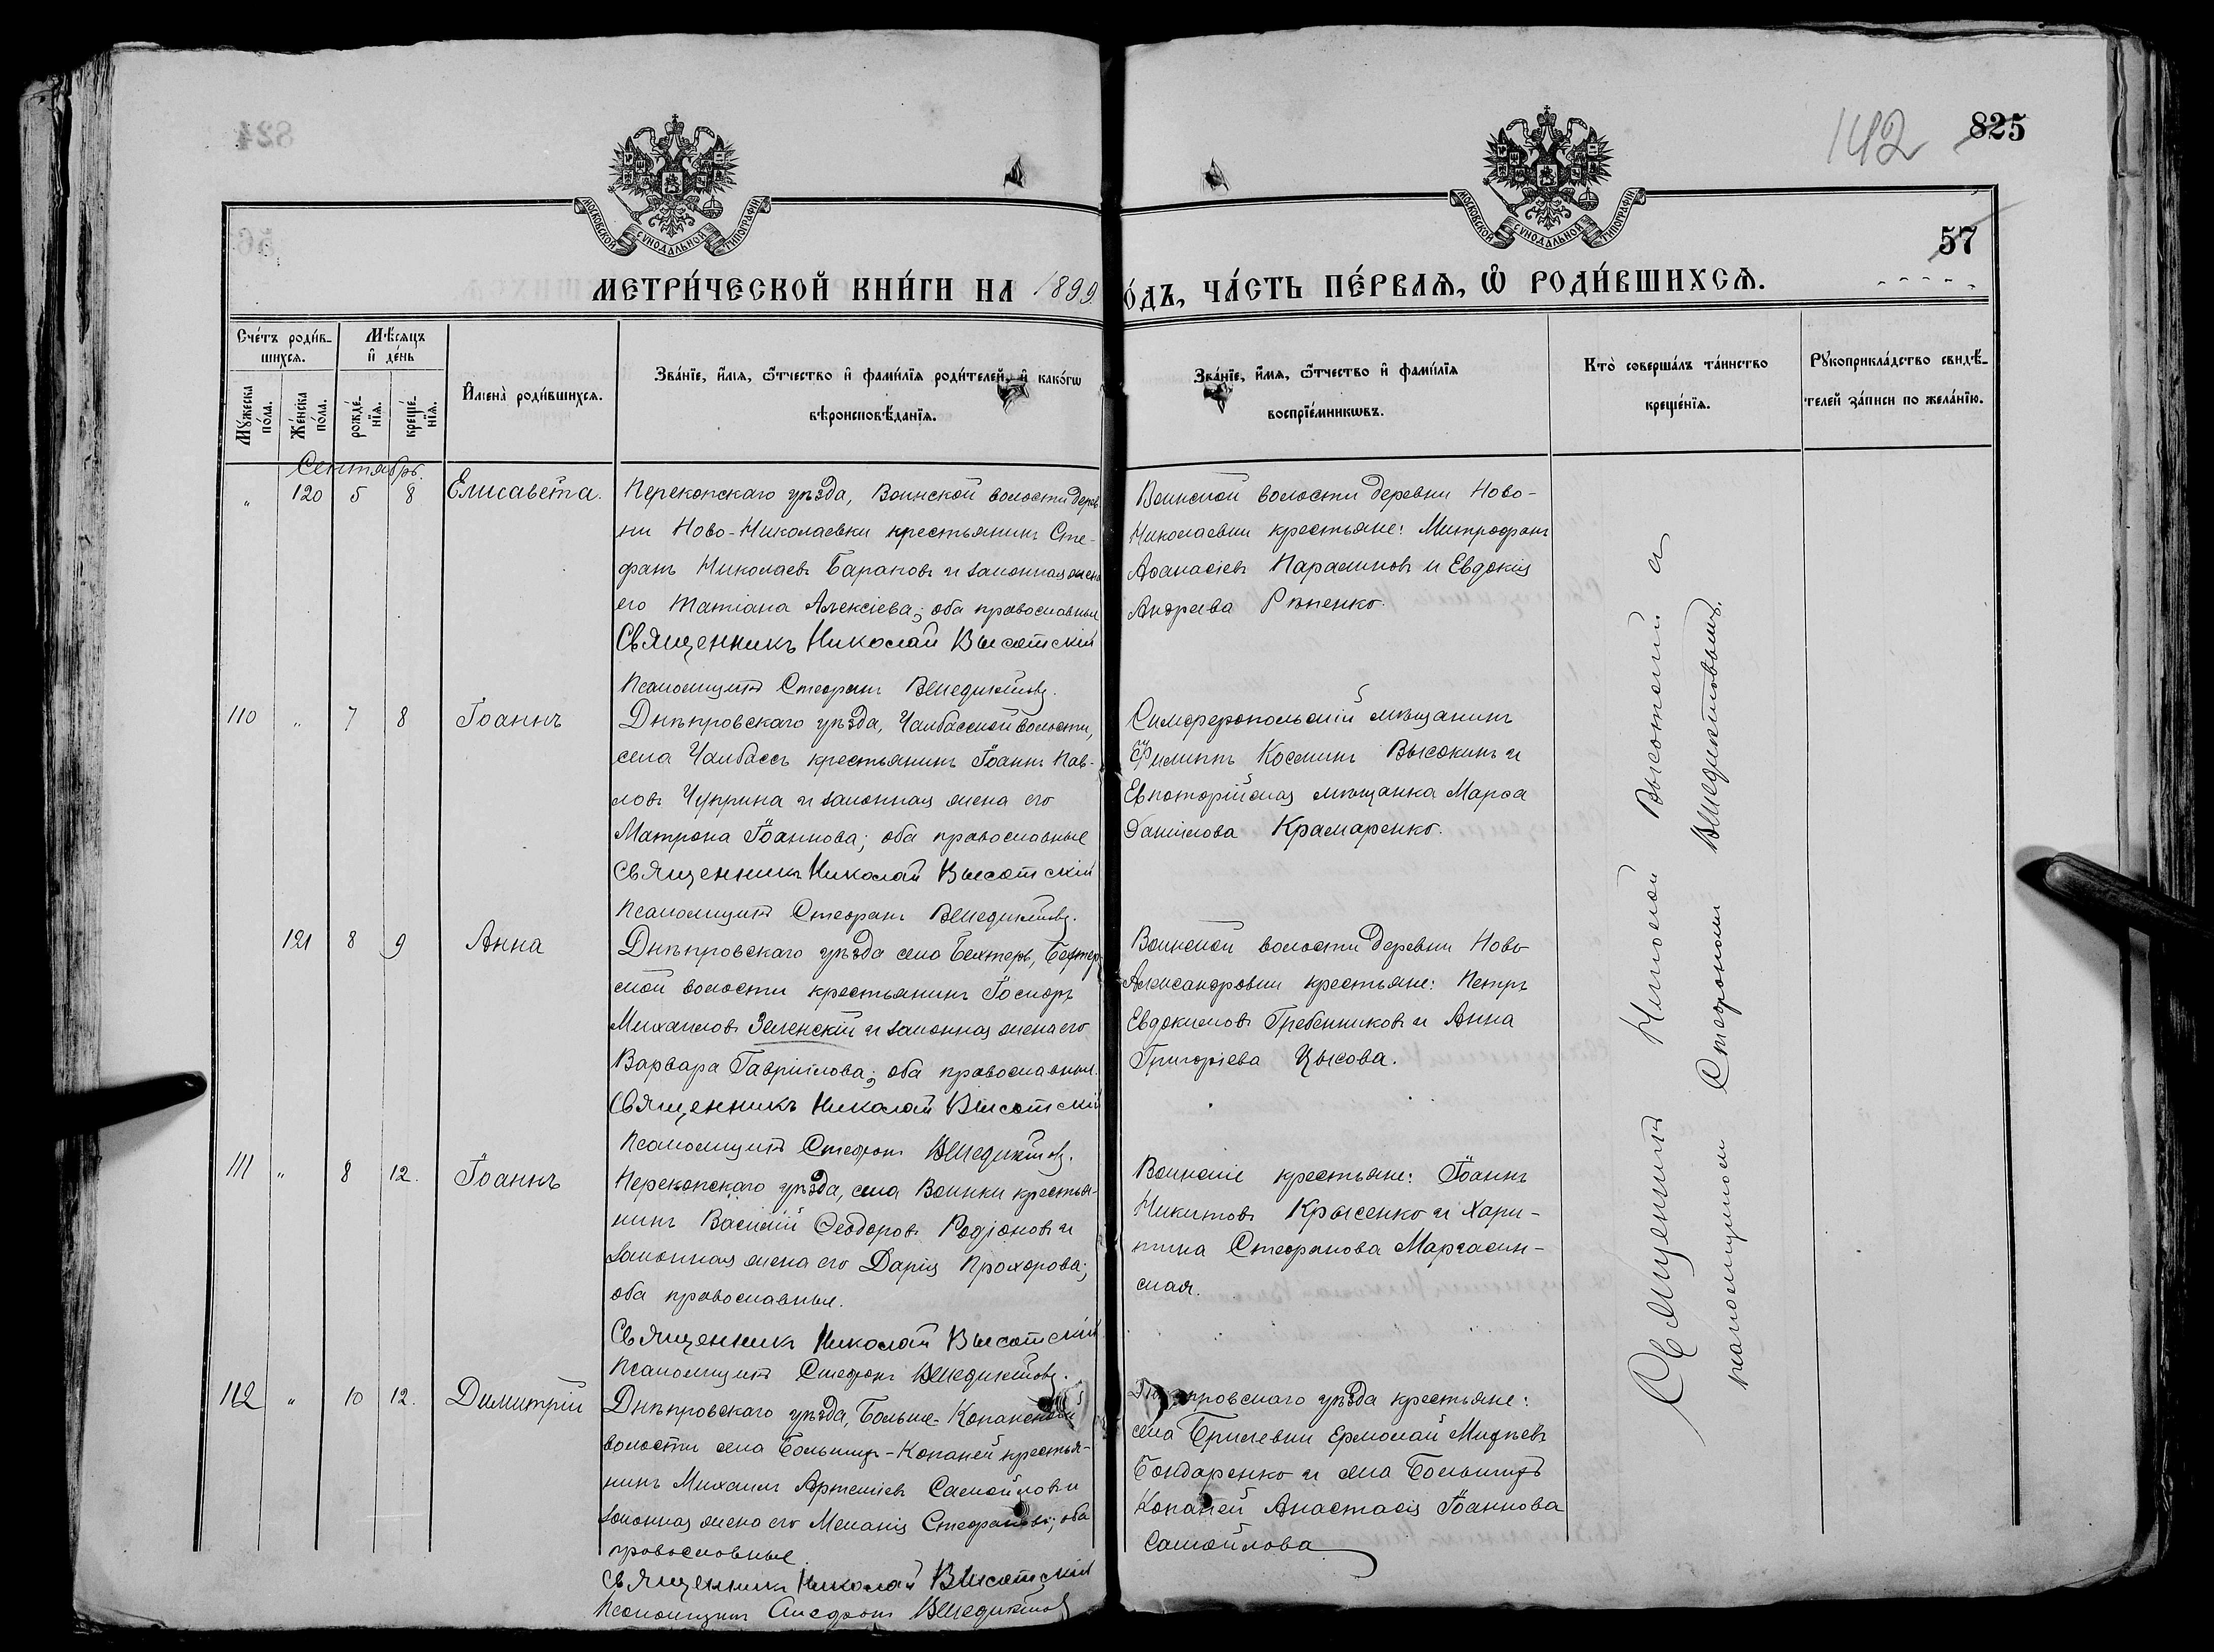 824
142 825
МОСКОВСКОЙ СѴНОДАЛЬНОЙ ТИПОГРАФІИ
МОСКОВСКОЙ СѴНОДАЛЬНОЙ ТИПОГРАФІИ
56
57
МЕТРИ́ЧЕСКОЙ КНИ́ГИ НА 1899
О́ДЪ, ЧА́СТЬ ПЕ́РВАѦ, Ѡ҆ РОДИ́ВШИХСѦ.
Сче́тъ роди́в-
шихсѧ.
Мѣ́сѧцъ
и҆ де́нь
Мꙋ́жеска
по́ла.
Же́нска
по́ла.
рожде́-
нїѧ.
креще́-
нїѧ.
И҆мена̀ роди́вшихсѧ.
Зва́нїе, и҆́мѧ, ѻ҆́тчество и҆ фами́лїѧ роди́телей, и҆ како́гѡ
вѣроисповѣ́данїѧ.
Зва́нїе, и҆́мѧ, ѻ҆́тчество и҆ фами́лїѧ
воспрїе́мникѡвъ.
Кто̀ соверша́лъ та́инство
креще́нїѧ.
Рꙋкоприкла́дство свидѣ́-
телей за́писи по жела́нїю.
Сентябрь.
" 120 5 8 Елисавета.
Перекопскаго уѣзда, Воинской волости дерев
ни Ново-Николаевки крестьянинъ Сте-
фанъ Николаевъ Барановъ и законная жена
его Татіана Алексіева; оба православные
Священникъ Николай Высотскій
Псаломщикъ Стефанъ Венедиктовъ.
Воинской волости деревни Ново-
Николаевки крестьяне: Митрофанъ
Аѳанасіевъ и Евдокія
Андреева Рѣпенко.
110 " 7 8 Іоаннъ
Днѣпровскаго уѣзда, Чалбасской волости,
села Чалбассъ крестьянинъ Іоаннъ Пав-
ловъ Чуприна и законная жена его
Матрона Іоаннова; оба православные
Священникъ Николай Высотскій
Псаломщикъ Стефанъ Венедиктовъ.
Симферопольскій мѣщанинъ
Филиппъ Косминъ Высокинъ и
Евпаторійская мѣщанка Марѳа
Даніилова Крамаренко.
121 8 9 Анна
Днѣпровскаго уѣзда села Бехтеръ, Бехтер
ской волости крестьянинъ Іосифъ
Михаиловъ Зеленскій и законная жена его
Варвара Гавріилова; оба православные.
Священникъ Николай Высотскій
Псаломщикъ Стефанъ Венедиктовъ.
Воинской волости деревни Ново
Александровки крестьяне: Петръ
Евдокимовъ Гребенниковъ и Анна
Григоріева Цысова.
111 " 8 12. Іоаннъ
Перекопскаго уѣзда, села Воинки крестья-
нинъ Василій Ѳеодоровъ Родіоновъ и
законная жена его Дарія Прохорова;
оба православные.
Священникъ Николай Высотскій
Псаломщикъ Стефанъ Венедиктовъ.
Воинскіе крестьяне: Іоаннъ
Никитовъ Крысенко и Хари-
тина Стефанова
ская.
112 " 10 12. Димитрій
Днѣпровскаго уѣзда, Больше-Копанской
волости села Большихъ-Копаней крестья-
нинъ Михаилъ Артеміевъ Самойловъ и
законная жена его Меланія Стефанова; оба
православные.
Священникъ Николай Высотскій
Псаломщикъ Стефанъ Венедиктовъ
Днѣпровскаго уѣзда крестьяне:
села Брилевки Ермолай
Бондаренко и села Большихъ
Копаней Анастасія Іоаннова
Самойлова
Священникъ Николай Высотскій съ
псаломщикомъ Стефаномъ Венедиктовымъ.